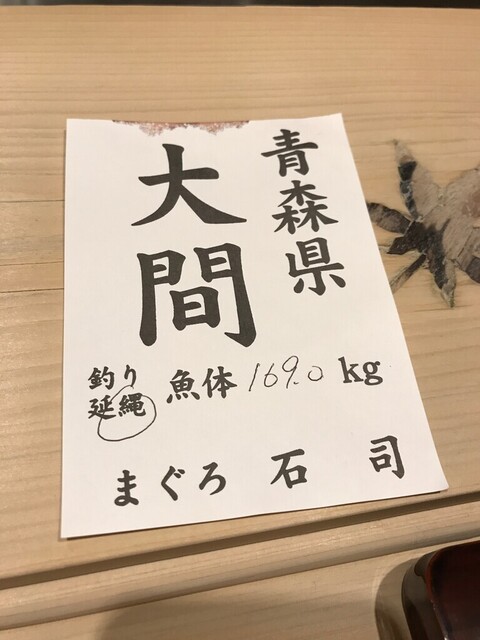 青森県
大間
釣り
延縄
魚体 169.0 kg
まぐろ 石司